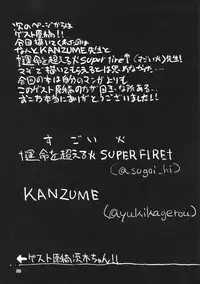 次のページからは
ゲスト原稿です!!
今回描いてくれたのは
なんとKANZUME先生と
†運命を超える火super fire†(すごい火)先生!
マジで描いてもらえるとは思わなかった…
今回の本は自分のマンガよりも
このゲスト原稿の方が
お二方本当にありがとうございました!!
すごい火
†運命を超える火SUPERFIRE†
(@sugoi_hi)
KANZUME
(@yukikagerou)
←ゲスト原稿茨木ちゃん!!